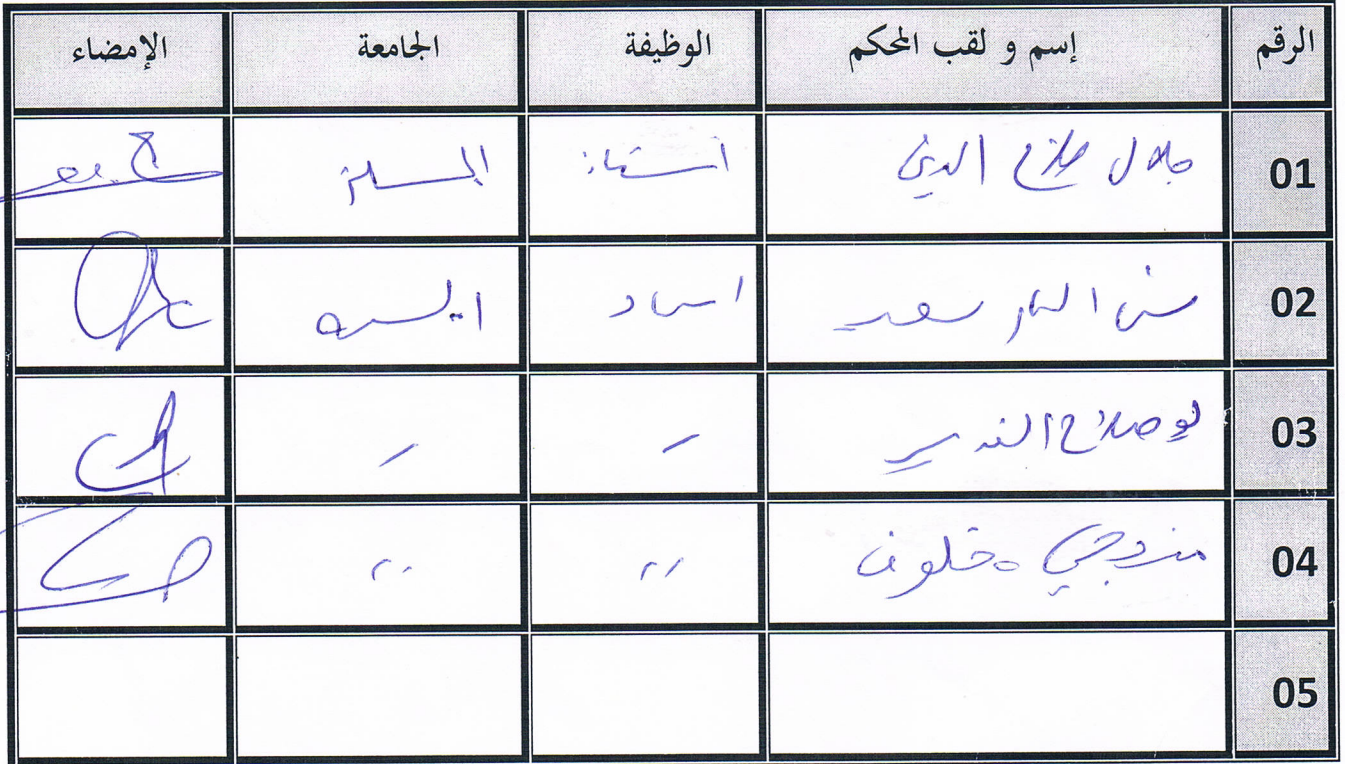 الرقم إسم و لقب المحكم الوظيفة الجامعة الإمضاء
01 جلال صلاح الدين استاذ المسيلة
02 سعيد استاد المسيلة
03 بوصلاح النذير
04 خلوف
05